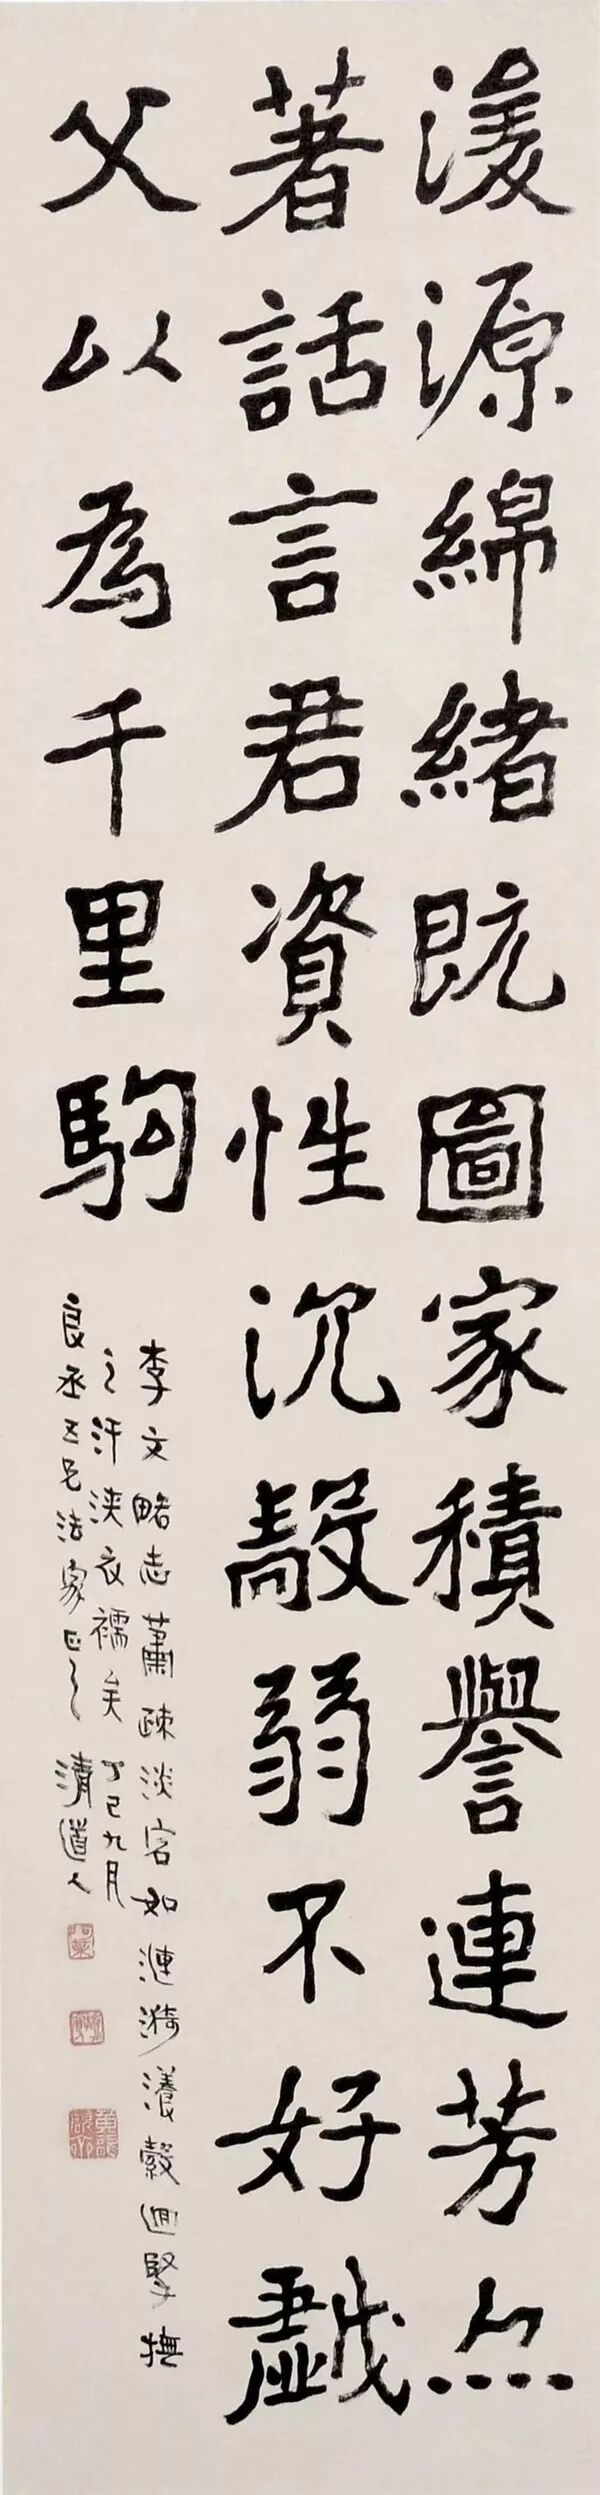 浚源綿緒既圖家積譽連芳亦
著話言君資性沉毅弱不好戲
父以為千里駒
李文略志蕭疎淡宕如漣漪瀁縠迴撫
之汗浹衣襦矣 丁巳九月
良丞五兄法家正之 清道人